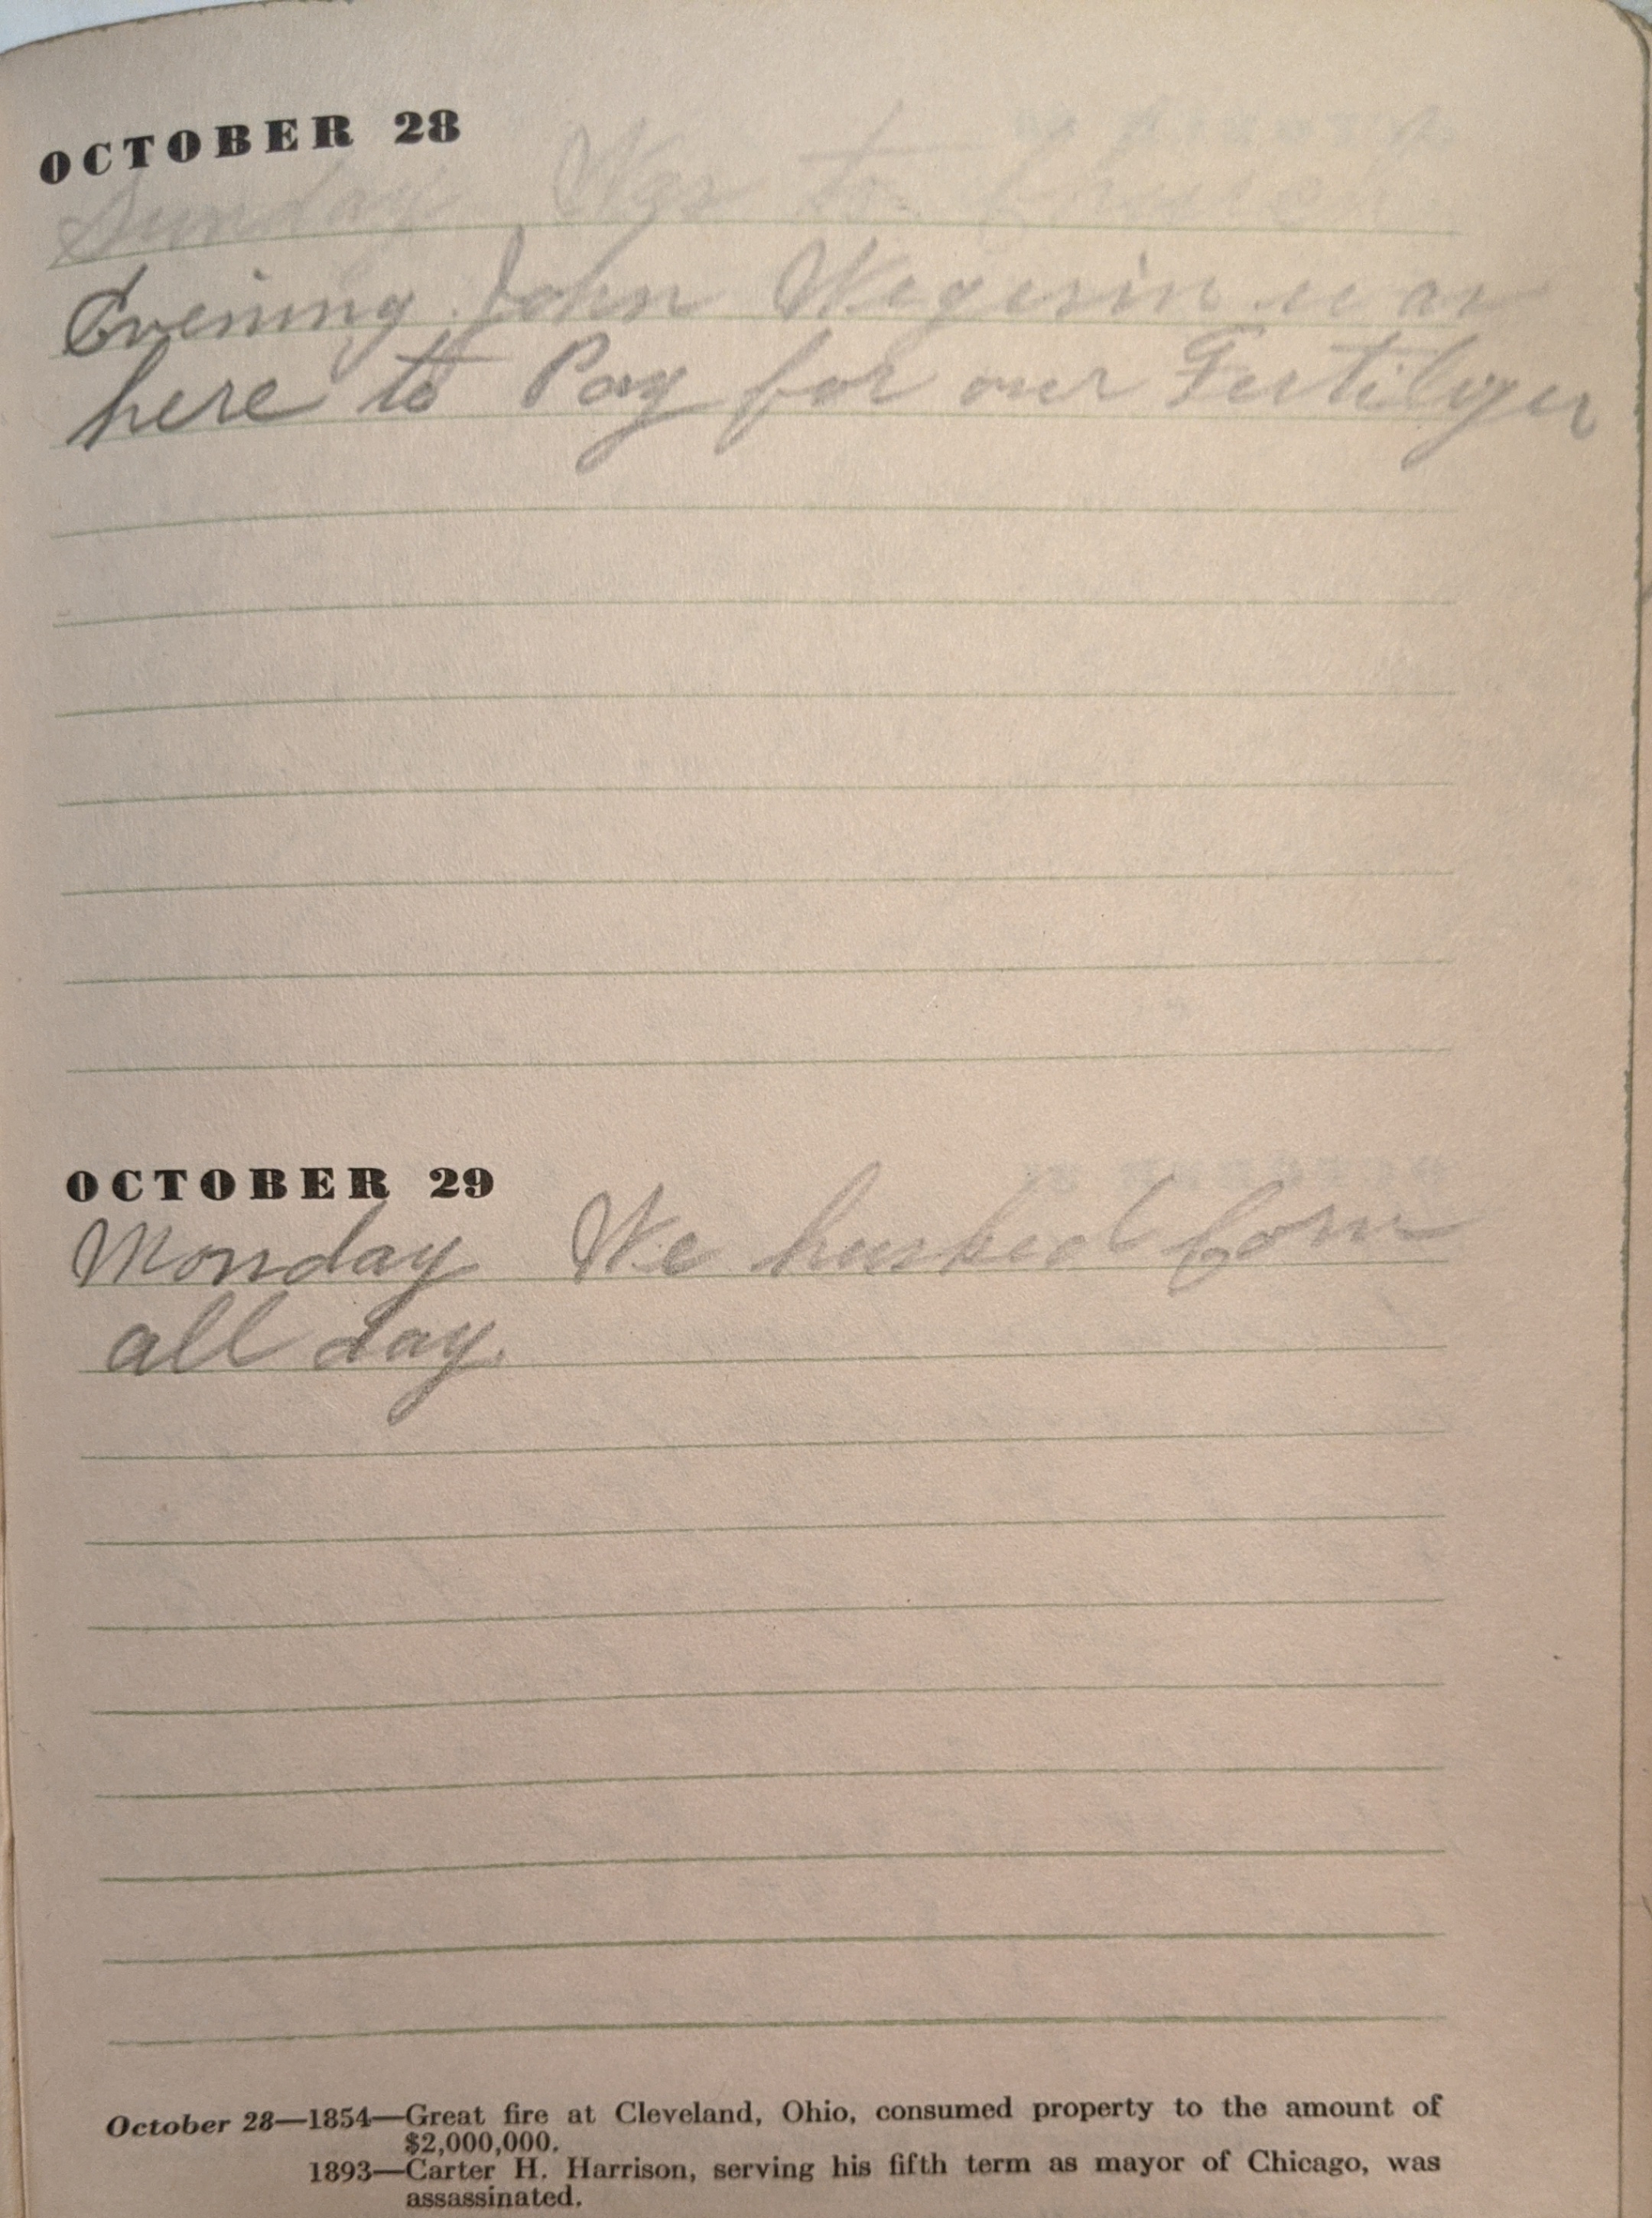 OCTOBER 28
Sunday Was to Church
Evening John Wegesin was
here to Pay for our Fertilyer
OCTOBER 29
Monday We husked Corn
all day.
October 28—1854—Great fire at Cleveland, Ohio, consumed property to the amount of
$2,000,000.
1893—Carter H. Harrison, serving his fifth term as mayor of Chicago, was
assassinated.